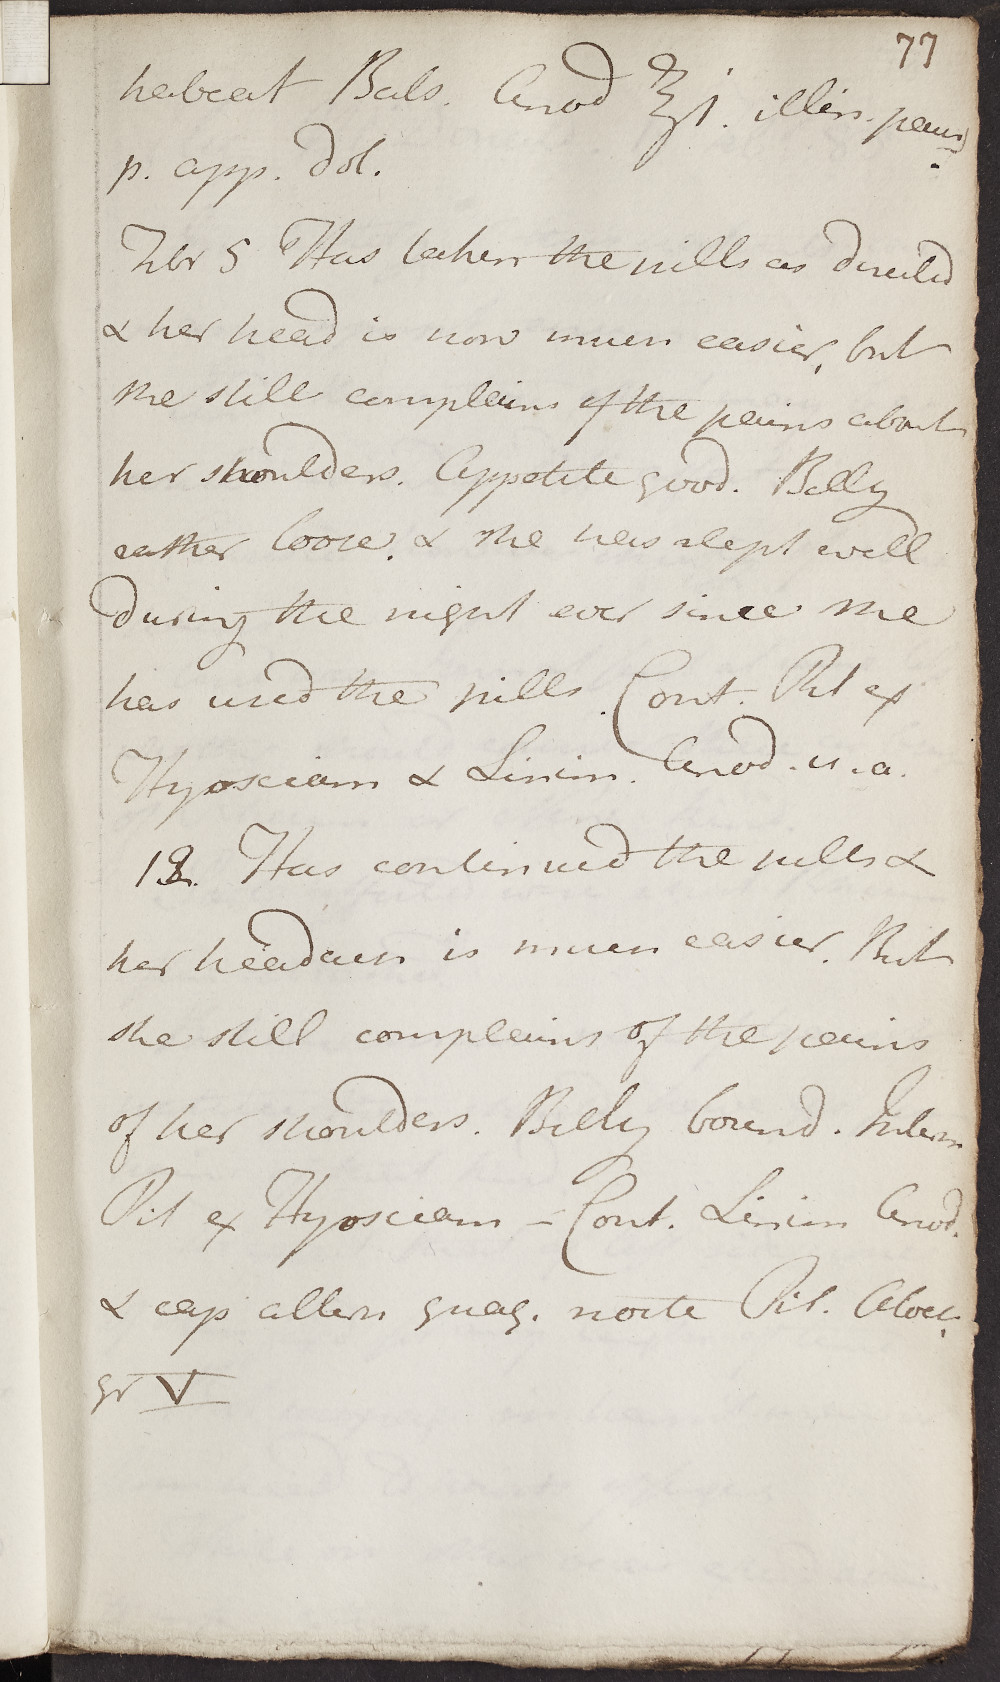 77
habeat Bals. Anod ℥j. illin. paux
p. app. dol.
7br 5 Has taken the pills as directed
& her head is now much easier, but
she still complains of the pains about
her shoulders. Appetite good. Belly
rather loose, & she has slept well
during the night ever since she
has used the pills. Cont. Pil ex
Hyosciam & Linim. Anod. u. a.
12. Has continued the pills &
her headach is much easier. But
she still complains of the pains
of her shoulders. Belly bound. Interm
Pil ex Hyosciam - Cont. Linim Anod.
& cap altern quaq. nocte Pil. Aloet.
gr V